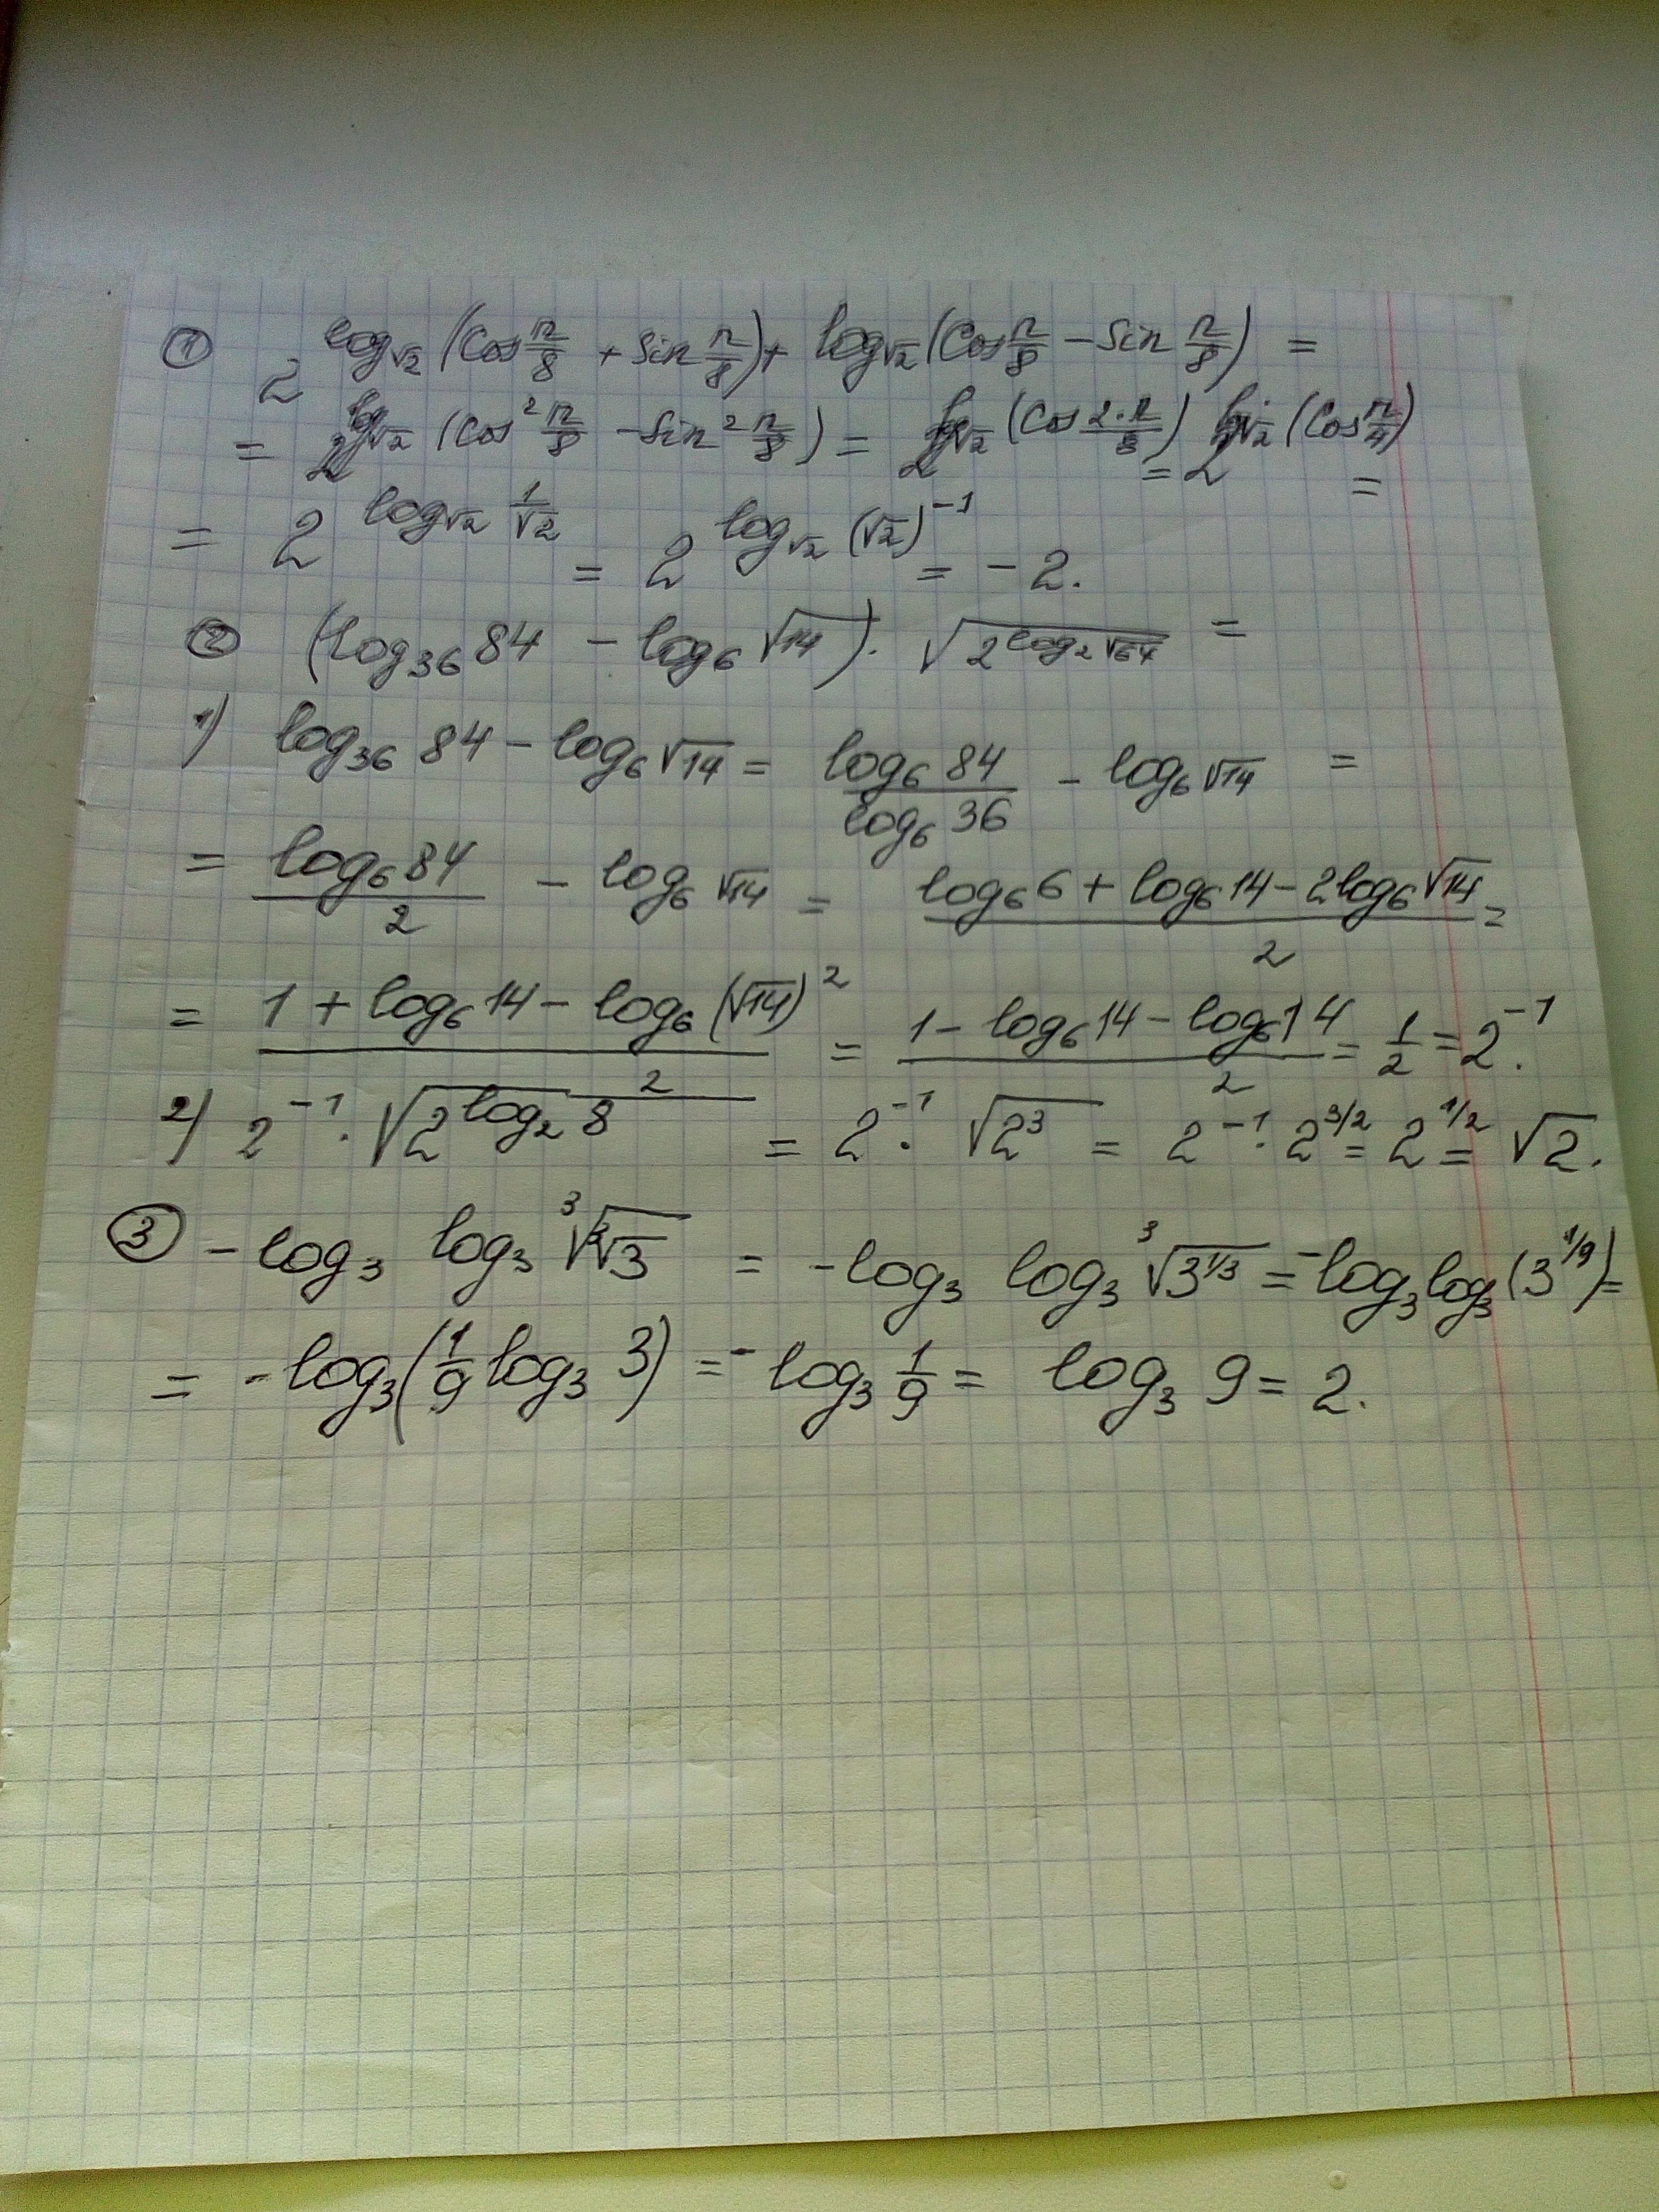 ① 2^(log_√2 (Cos π/8 + Sin π/8) + log_√2 (Cos π/8 − Sin π/8)) =
= 2^(log_√2 (Cos² π/8 − Sin² π/8)) = 2^(log_√2 (Cos 2·π/8)) = 2^(log_√2 (Cos π/4)) =
= 2^(log_√2 1/√2) = 2^(log_√2 (√2)^−1) = −2.
② (log₃₆ 84 − log₆ √14) · √(2^(log₂ √64)) =
1) log₃₆ 84 − log₆ √14 = log₆ 84 / log₆ 36 − log₆ √14 =
= log₆ 84 / 2 − log₆ √14 = (log₆ 6 + log₆ 14 − 2 log₆ √14) / 2 =
= (1 + log₆ 14 − log₆ (√14)²) / 2 = (1 − log₆ 14 − log₆ 14) / 2 = 1/2 = 2^−1.
2) 2^−1 · √(2^(log₂ 8)) = 2^−1 · √(2³) = 2^−1 · 2^(3/2) = 2^(1/2) = √2.
③ − log₃ log₃ ∛(∛3) = − log₃ log₃ ∛(3^(1/3)) = − log₃ log₃ (3^(1/9)) =
= − log₃ (1/9 log₃ 3) = − log₃ 1/9 = log₃ 9 = 2.